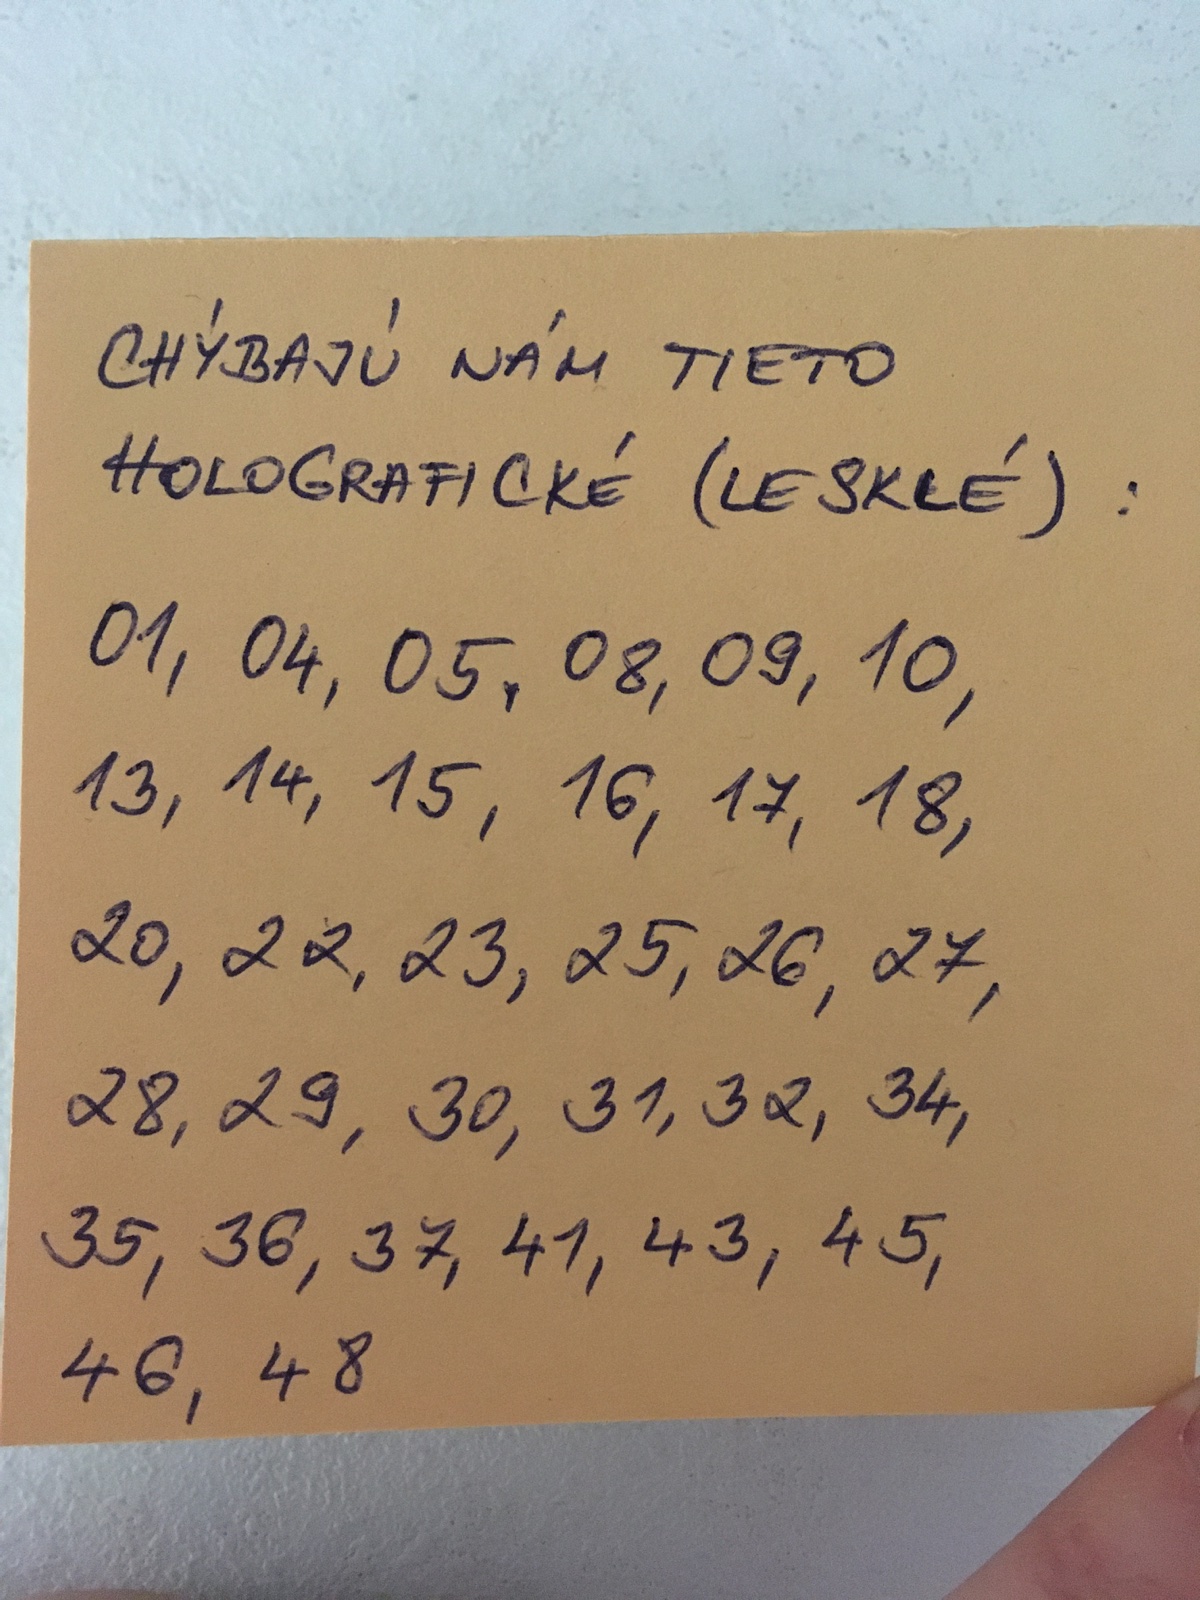 CHÝBAJÚ NÁM TIETO
HOLOGRAFICKÉ (LESKLÉ) :
01, 04, 05, 08, 09, 10,
13, 14, 15, 16, 17, 18,
20, 22, 23, 25, 26, 27,
28, 29, 30, 31, 32, 34,
35, 36, 37, 41, 43, 45,
46, 48